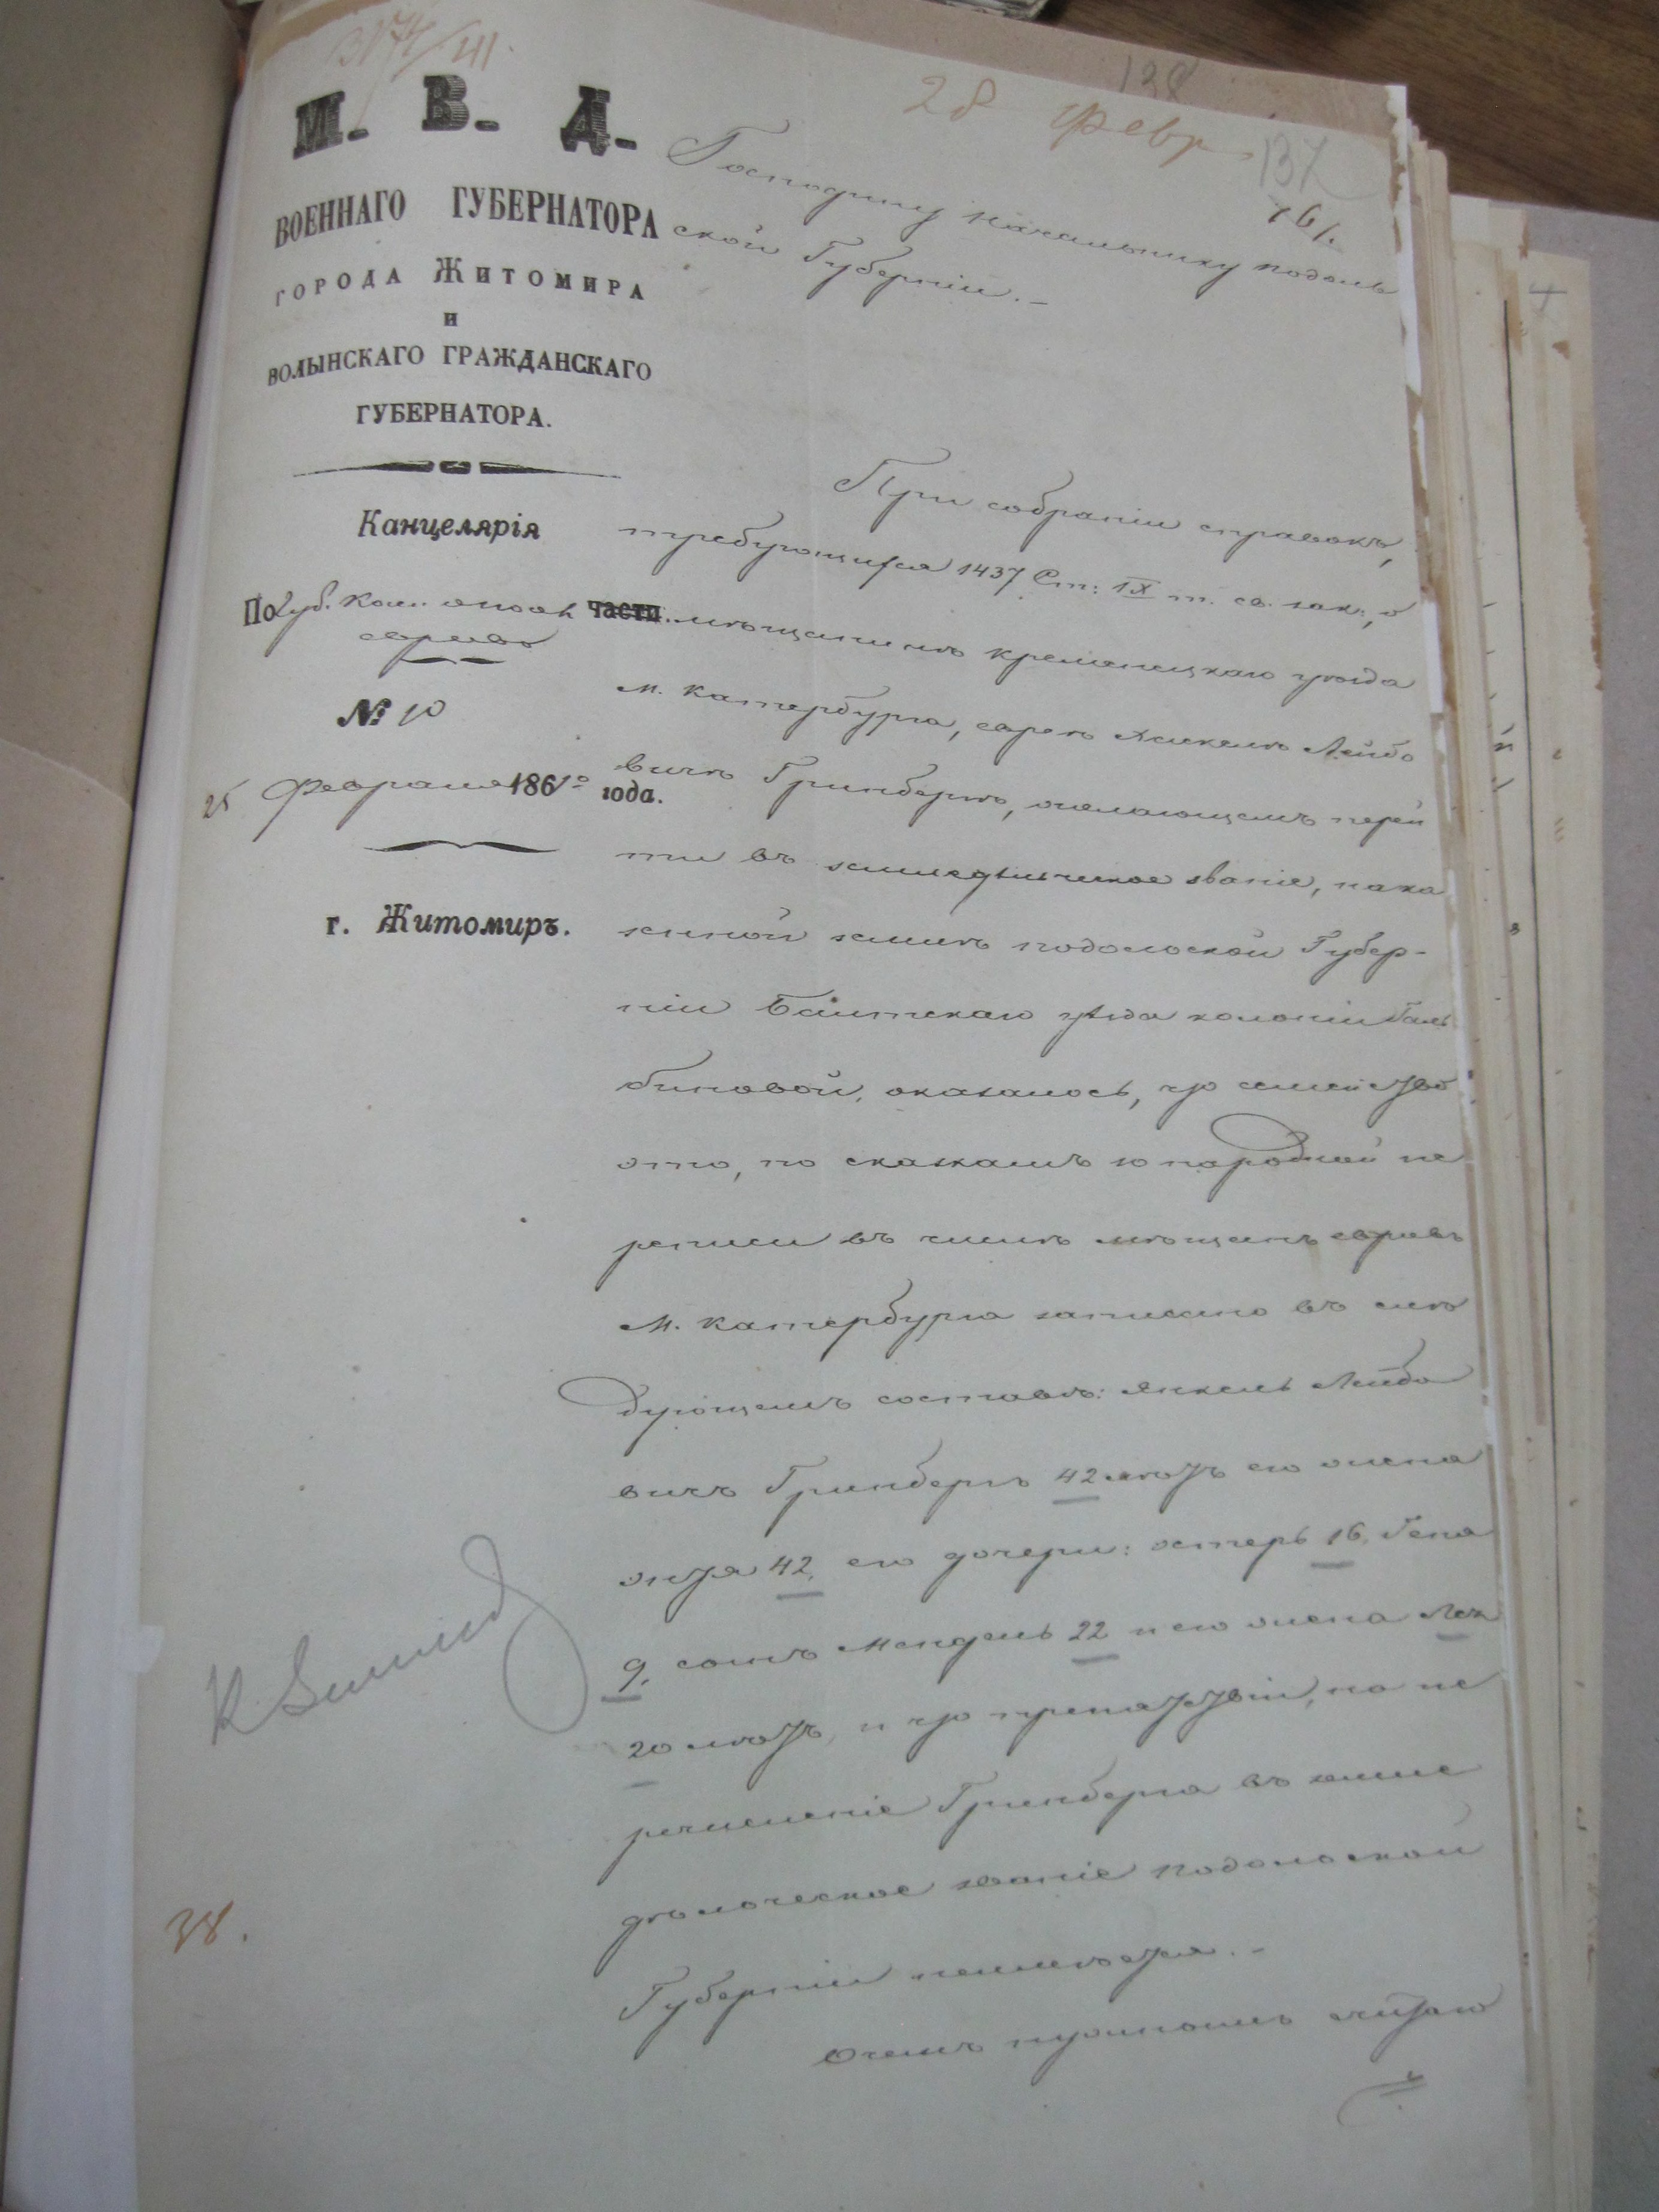 3174/III.
28 Февр
138
137
161.
М. В. Д.
ВОЕННАГО ГУБЕРНАТОРА
ГОРОДА ЖИТОМИРА
И
ВОЛЫНСКАГО ГРАЖДАНСКАГО
ГУБЕРНАТОРА.
Канцелярія
По части.
евреевъ
№ 10
25 Февраля 1861 года.
г. Житомиръ.
Господину Начальнику Подоль
ской Губерніи.
При собраніи справокъ,
требующихся 1437 Ст: IX т. св. зак:, о
мѣщанинѣ Кременецкаго уѣзда
м. Катербурга, евреѣ Янкелѣ Лейбо
вичѣ Гринбергѣ, желающемъ перей
ти въ земледѣльческое званіе, на ка
зенной землѣ Подольской Губер-
ніи Балтскаго уѣзда колоніи Галь
биновой, оказалось, что семейство
это, по сказкамъ 10 народной пе
реписи въ числѣ мѣщанъ евреевъ
м. Катербурга записано въ слѣ
дующемъ составѣ: Янкель Лейбо
вичъ Гринбергъ 42 лѣтъ его жена
Энтя 42, его дочери: Эстеръ 16, Геня
9, сынъ Мендель 22 и его жена Лея
20 лѣтъ, и что препятствій, на пе
речисленіе Гринберга въ земле
дѣльческое званіе Подольской
Губерніи неимѣется.
О чемъ
38.